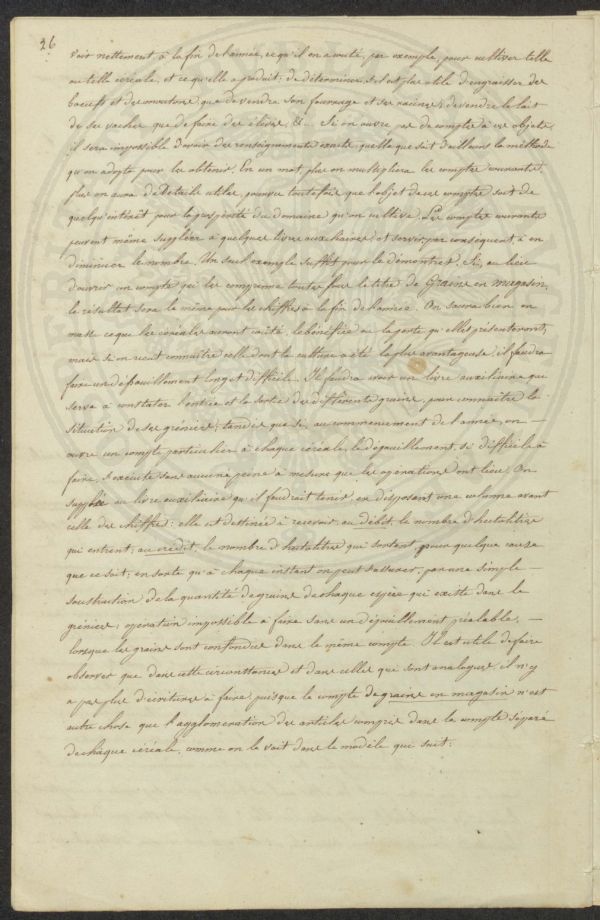 26
voir nettement à la fin de l'année, ce qu'il en a coûté, par exemple, pour cultiver telle
ou telle céréale, et ce qu'elle a produit; de déterminer s'il est plus utile d'engraisser des
bœufs et des moutons, que de vendre son fourrage et ses racines; de vendre le lait
de ses vaches que de faire des élèves, &.. Si on ouvre pas de compte à ces objets,
il sera impossible d'avoir des renseignements exacts, quelle que soit d'ailleurs la méthode
qu'on adopte pour les obtenir. En un mot, plus on multipliera les comptes courants,
plus on aura de détails utiles, pourvu toutefois que l'objet de ces comptes soit de
quelqu'intérêt pour la prospérité du domaine qu'on cultive. Les comptes courants
peuvent même suppléer à quelques livres auxiliaires et servir, par conséquent, à en
diminuer le nombre. Un seul exemple suffit pour le démontrer. Si, au lieu
d'ouvrir un compte qui les comprenne toutes sous le titre de Grains en magasin,
le résultat sera le même pour les chiffres à la fin de l'année. On saura bien en
masse ce que les céréales auront coûté, le bénéfice ou la perte qu'elles présenteront,
mais si on veut connaître celle dont la culture a été la plus avantageuse, il faudra
faire un dépouillement long et difficile. Il faudra avoir un livre auxiliaire qui
serve à constater l'entrée et la sortie des différents grains, pour connaître la
situation de ses greniers; tandis que si, au commencement de l'année, on —
ouvre un compte particulier à chaque céréale, le dépouillement, si difficile à
faire, s'exécute sans aucune peine à mesure que les opérations ont lieu. On
supplée au livre auxiliaire qu'il faudrait tenir, en disposant une colonne avant
celle des chiffres: elle est destinée à recevoir, au débit, le nombre d'hectolitres
qui entrent; au crédit, le nombre d'hectolitres qui sortent, pour quelque cause
que ce soit; en sorte qu'à chaque instant on peut s'assurer, par une simple —
soustraction de la quantité de grains de chaque espèce qui existe dans les
greniers; opération impossible à faire sans un dépouillement préalable, —
lorsque les grains sont confondus dans le même compte. Il est utile de faire
observer que dans cette circonstance et dans celles qui sont analogues, il n'y
a pas plus d'écritures à faire, puisque le compte de grains en magasin n'est
autre chose que l'agglomération des articles compris dans le compte séparé
de chaque céréale, comme on le voit dans le modèle qui suit: